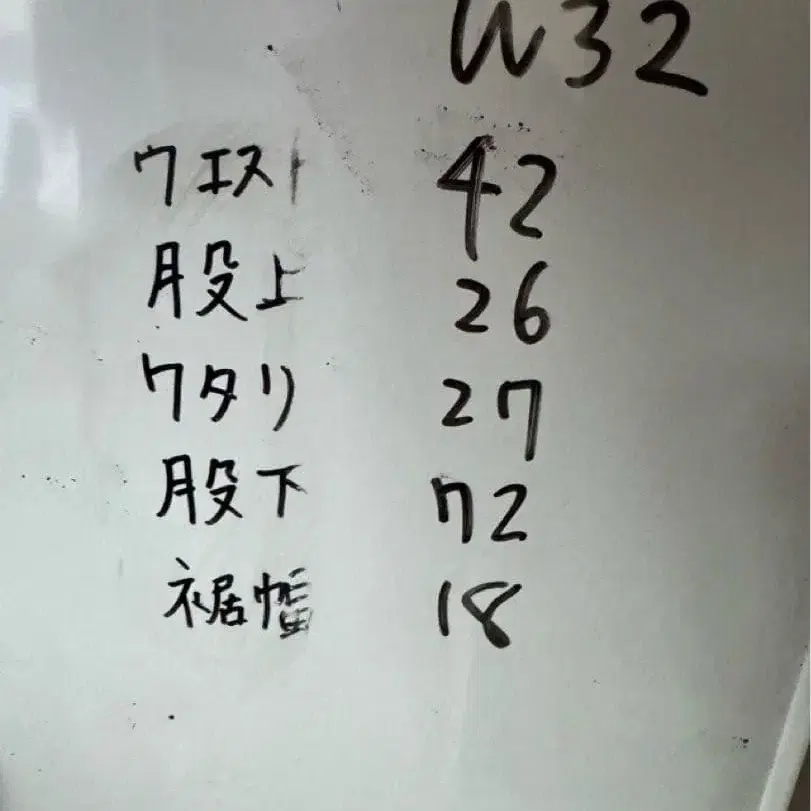 W32
ウエスト 42
股上 26
ワタリ 27
股下 72
裾幅 18